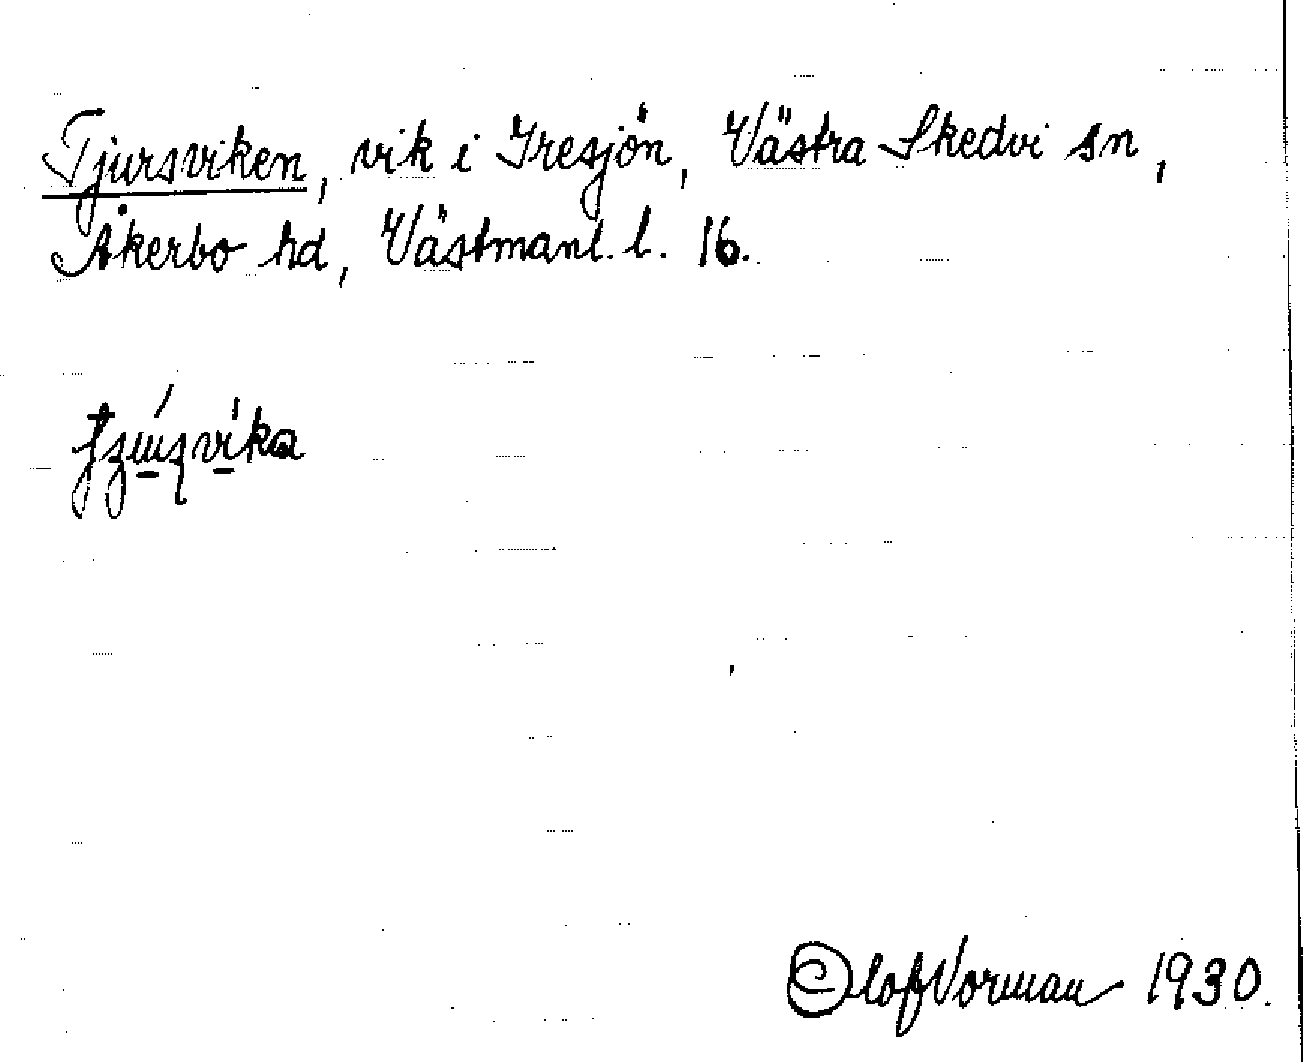 Tjursviken, vik i Iresjön, Västra Skedvi sn,
Åkerbo hd, Västmanl. l. 16.
Olof Vorman 1930.